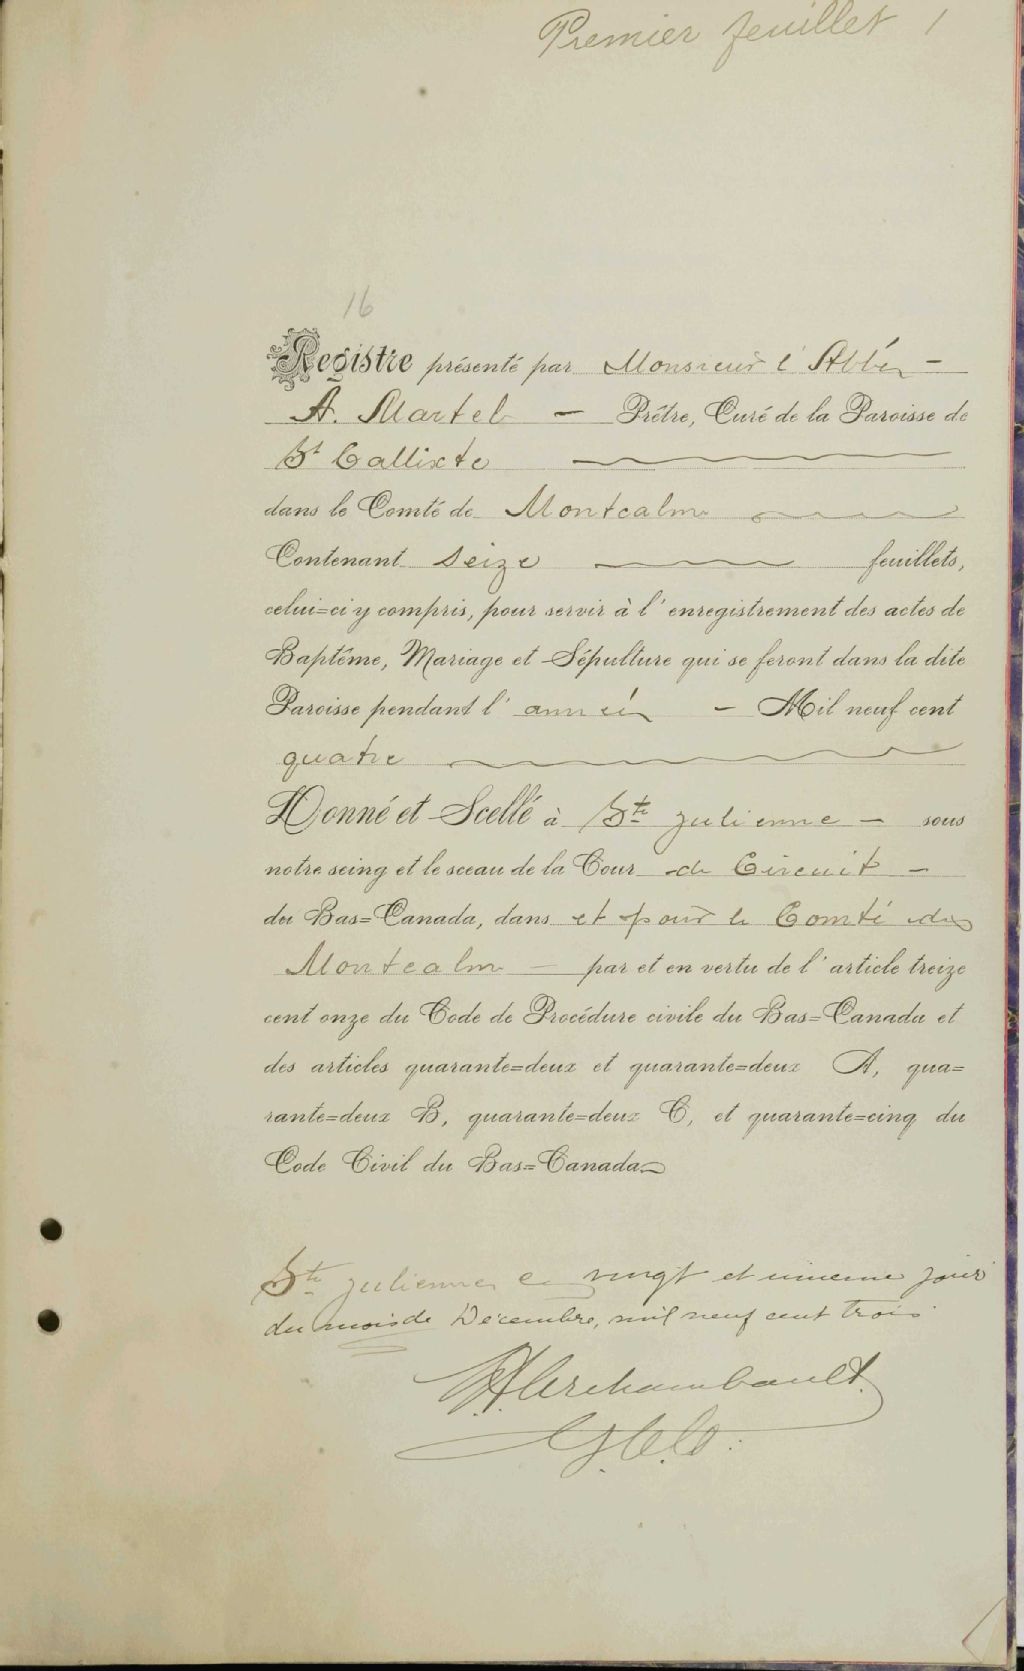 Premier feuillet 1
16
Registre présenté par Monsieur l'Abbé -
A. Martel - Prêtre, Curé de la Paroisse de
St Callixte
dans le Comté de Montcalm
Contenant seize feuillets,
celui=ci y compris, pour servir à l'enregistrement des actes de
Baptême, Mariage et Sépulture qui se feront dans la dite
Paroisse pendant l'année - Mil neuf cent
quatre
Donné et Scellé à Ste Julienne - sous
notre seing et le sceau de la Cour de Circuit -
du Bas=Canada, dans et pour le Comté de
Montcalm - par et en vertu de l'article treize
cent onze du Code de Procédure civile du Bas=Canada et
des articles quarante=deux et quarante=deux A, qua=
rante=deux B, quarante=deux C, et quarante=cinq du
Code Civil du Bas=Canada
Ste Julienne ce vingt et unieme jour
du mois de Décembre, mil neuf cent trois
Archambault
G.C.C.